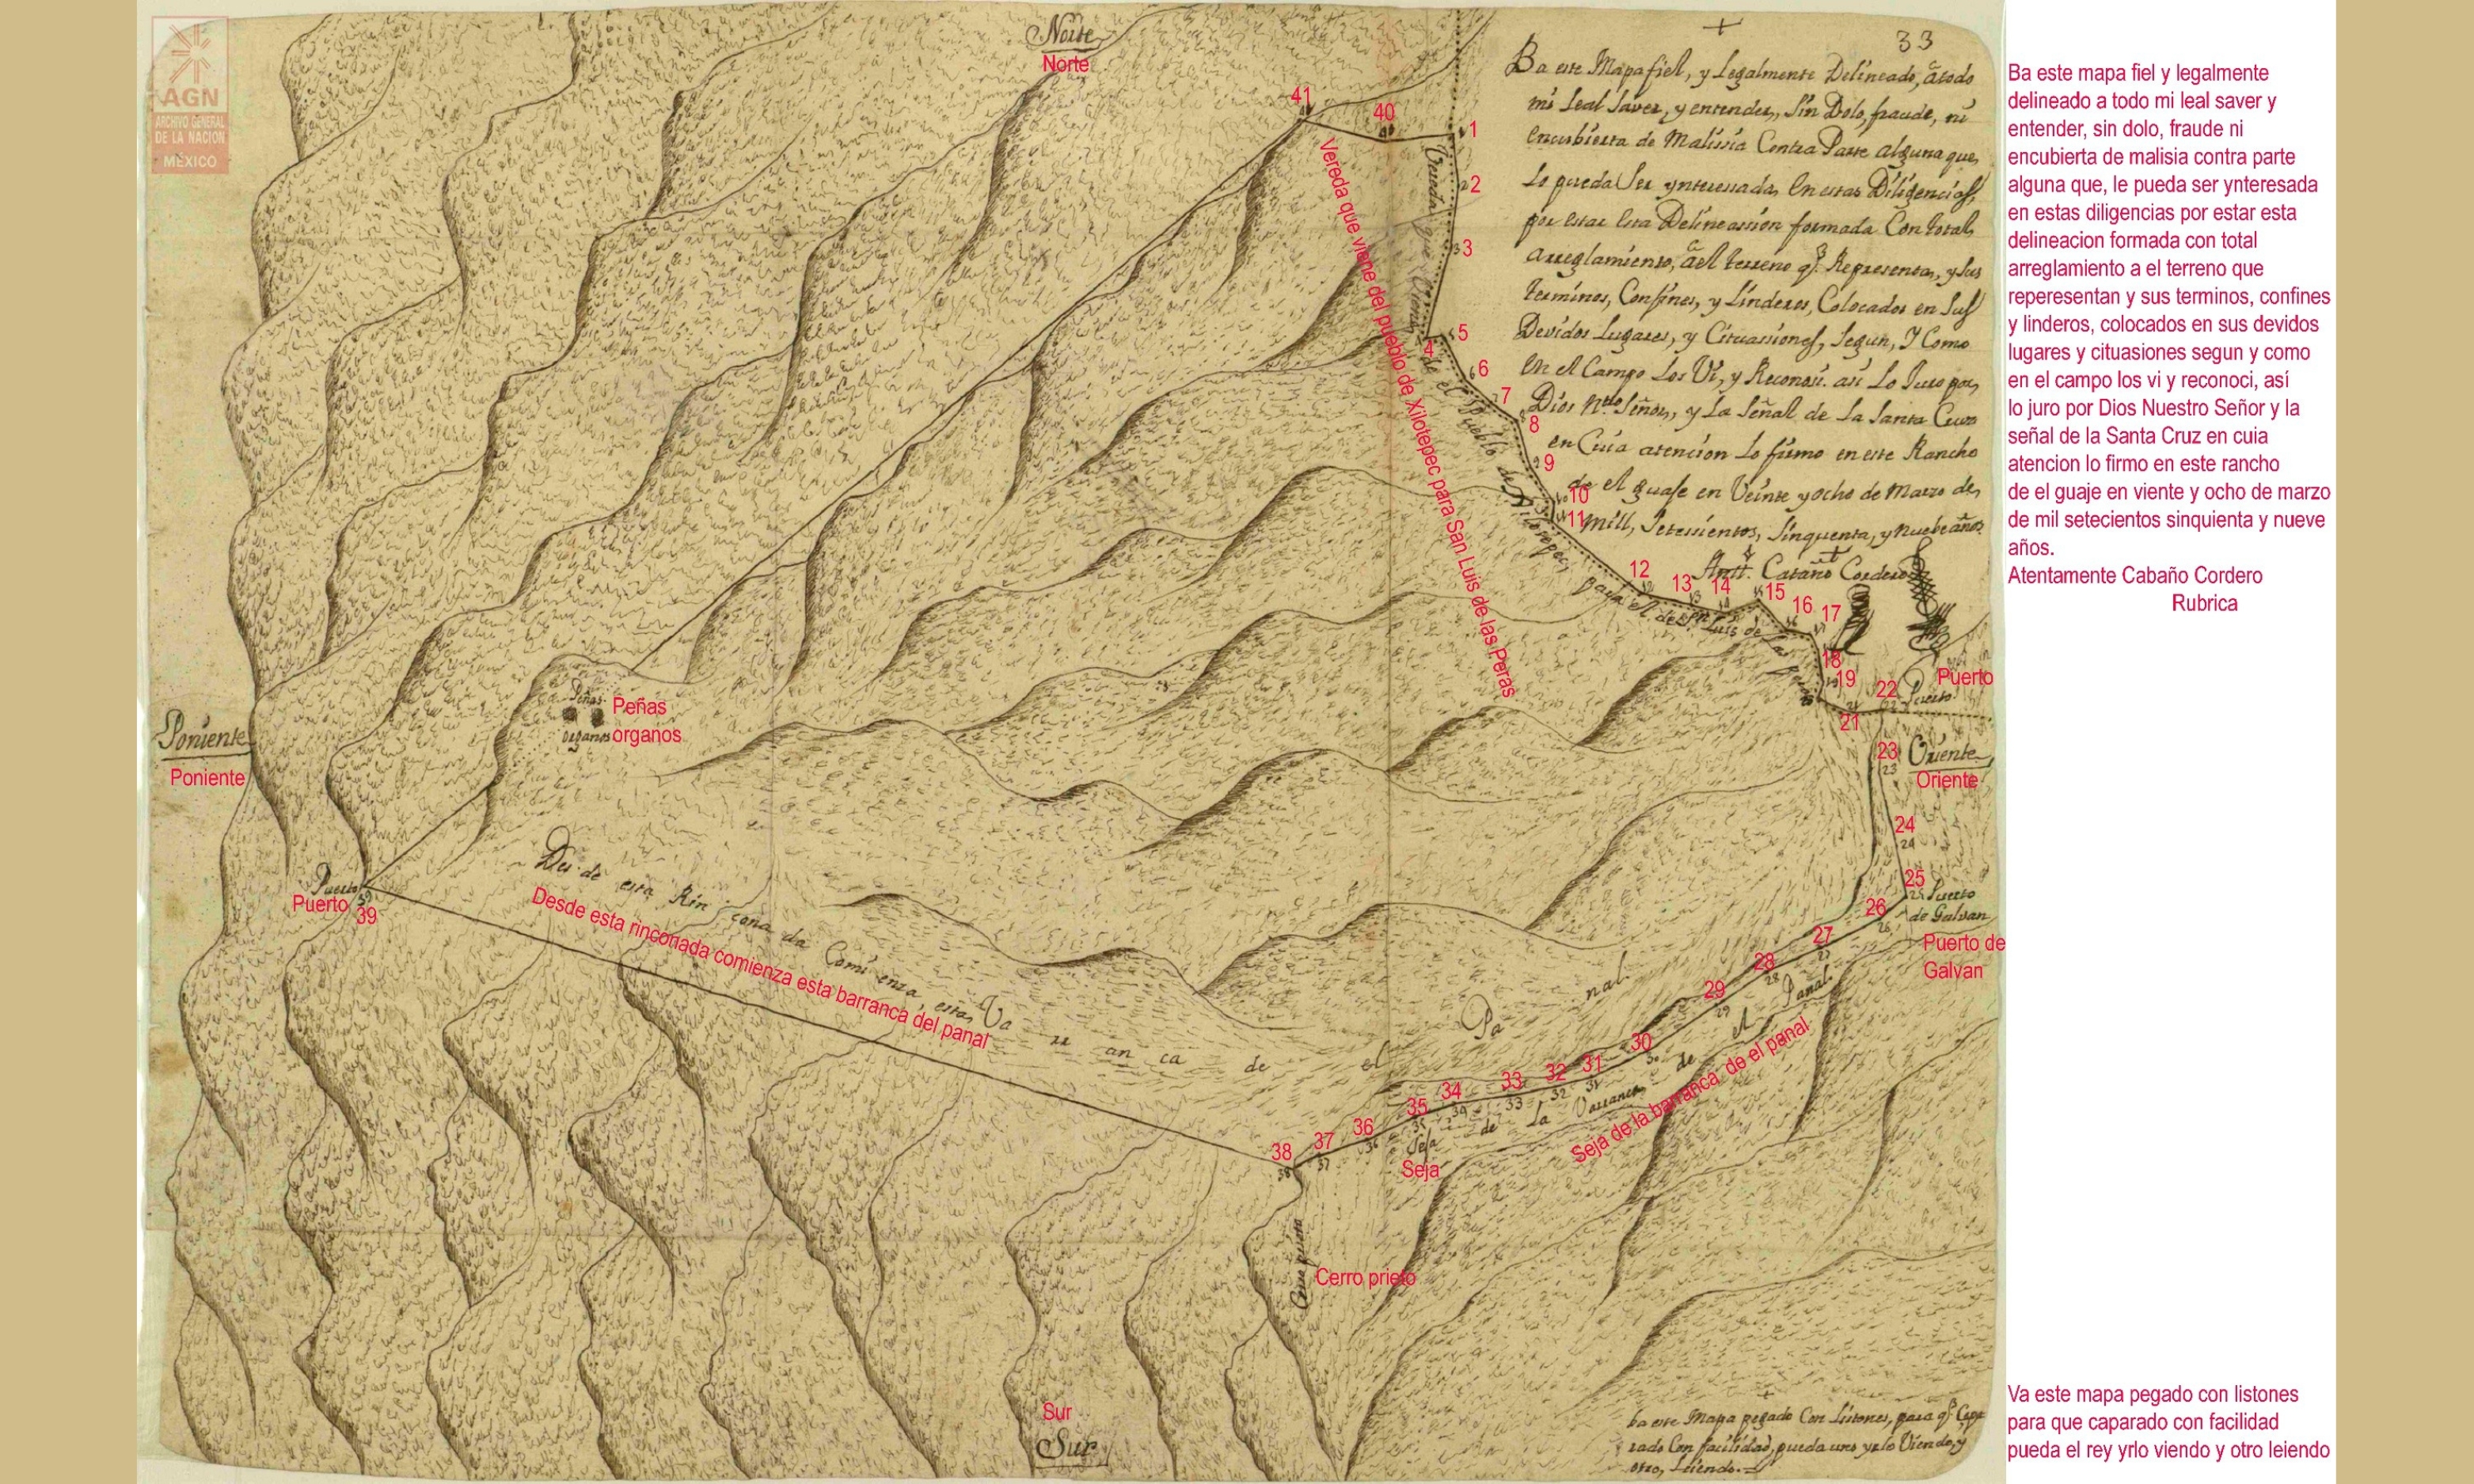 AGN
ARCHIVO GENERAL
DE LA NACION
MÉXICO
Norte
Norte
33
Ba este Mapa fiel, y Legalmente Delineado, a todo
mi Leal Saver, y entender, Sin Dolo, fraude, ni
encubierta de Malissia Contra Parte alguna que,
le pueda Ser ynteresada, en estas Diligencias,
por estar esta Delineassion formada Con total,
arreglamiento, a el terreno q.e Representa, y sus
terminos, Confines, y Linderos, Colocados en Sus
Devidos Lugares, y Cituassiones, Segun, Y Como
en el Campo Los Vi, y Reconosi. asi Lo Juro por,
Dios Ntro Señor, y La Señal de La Santa Cruz
en Cuia atencion Lo firmo en este Rancho
de el guaje en Veinte y ocho de Marzo de,
Mill, Setesientos, Sinquenta, y nuebe años
Cordero
Ba este mapa fiel y legalmente
delineado a todo mi leal saver y
entender, sin dolo, fraude ni
encubierta de malisia contra parte
alguna que, le pueda ser ynteresada
en estas diligencias por estar esta
delineacion formada con total
arreglamiento a el terreno que
reperesentan y sus terminos, confines
y linderos, colocados en sus devidos
lugares y cituasiones segun y como
en el campo los vi y reconoci, así
lo juro por Dios Nuestro Señor y la
señal de la Santa Cruz en cuia
atencion lo firmo en este rancho
de el guaje en viente y ocho de marzo
de mil setecientos sinquienta y nueve
años.
Atentamente Cabaño Cordero
Rubrica
41
40
1
2
3
4
5
6
7
8
9
10
11
12
13
14
15
16
17
18
19
21
22
23
24
25
26
27
28
29
30
31
32
33
34
35
36
37
38
39
Vereda que viene del pueblo de Xilotepec para San Luis de las Peras
Vereda que viene de el Pueblo de Xilotepec,
para el de Sn Luis de Las Peras
Puerto
Puerto
Oriente
Oriente
Peñas
organos
Peñas
órganos
Poniente
Poniente
Puerto
Puerto
Puerto
de Galvan
Puerto de
Galvan
Des de esta Rin cona da Comi enza esta, Va rr an ca de el Pa nal
Desde esta rinconada comienza esta barranca del panal
Seja de La Varranca de el Panal
Seja
Seja de la barranca de el panal
Cerro prieto
Sur
Sur
ba este Mapa pegado Con Listones, para q.e
rado Con facilidad, pueda uno yrlo Viendo, y
otro, Leiendo.
Va este mapa pegado con listones
para que caparado con facilidad
pueda el rey yrlo viendo y otro leiendo